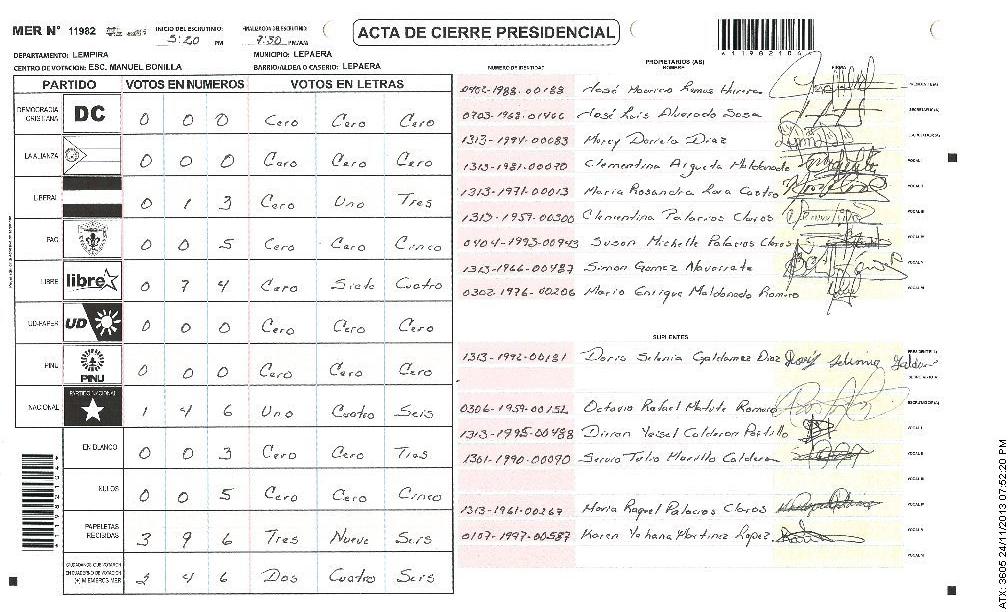 MER N° 11982 INICIO DEL ESCRUTINIO: 5:20 PM FINALIZACION DEL ESCRUTINIO: 7:30 PM/AM
ACTA DE CIERRE PRESIDENCIAL
DEPARTAMENTO: LEMPIRA MUNICIPIO: LEPAERA
CENTRO DE VOTACION: ESC. MANUEL BONILLA BARRIO/ALDEA O CASERIO: LEPAERA
PARTIDO VOTOS EN NUMEROS VOTOS EN LETRAS
DEMOCRACIA CRISTIANA DC 0 0 0 Cero Cero Cero
LA ALIANZA 0 0 0 Cero Cero Cero
LIBERAL 0 1 3 Cero Uno Tres
FAC 0 0 5 Cero Cero Cinco
LIBRE libre 0 7 4 Cero Siete Cuatro
UD-FAPER UD 0 0 0 Cero Cero Cero
PINU PINU 0 0 0 Cero Cero Cero
NACIONAL PARTIDO NACIONAL 1 4 6 Uno Cuatro Seis
EN BLANCO 0 0 3 Cero Cero Tres
NULOS 0 0 5 Cero Cero Cinco
PAPELETAS RECIBIDAS 3 9 6 Tres Nueve Seis
CIUDADANOS QUE VOTARON EN CUADERNO DE VOTACION (+) MIEMBROS MER 2 4 6 Dos Cuatro Seis
11982106
PROPIETARIOS (AS)
NUMERO DE IDENTIDAD NOMBRE FIRMA
0402-1988-00188 José Mauricio Ramos Herrera
0703-1968-01466 José Luis Alvarado Sosa
1313-1994-00083 Mercy Dariela Diaz
1313-1981-00070 Clementina Argueta Maldonado
1313-1971-00013 Maria Rosandra Lara Castro
1313-1959-00300 Clementina Palacios Claros
0404-1993-00943 Susan Michelle Palacios Claros
1313-1966-00487 Simon Gomez Navarrete
0302-1976-00206 Mario Enrique Maldonado Romero
SUPLENTES
1313-1992-00181 Doris Selenia Galdamez Diaz
0306-1959-00152 Octavio Rafael Matute Romero
1313-1995-00488 Dirian Yeisel Calderon Portillo
1301-1990-00090 Servio Tulio Murillo Calderon
1313-1961-00267 Maria Raquel Palacios Claros
0107-1997-00587 Karen Yohana Martinez Lopez
ATX: 3605 24/11/2013 07:52:20 PM